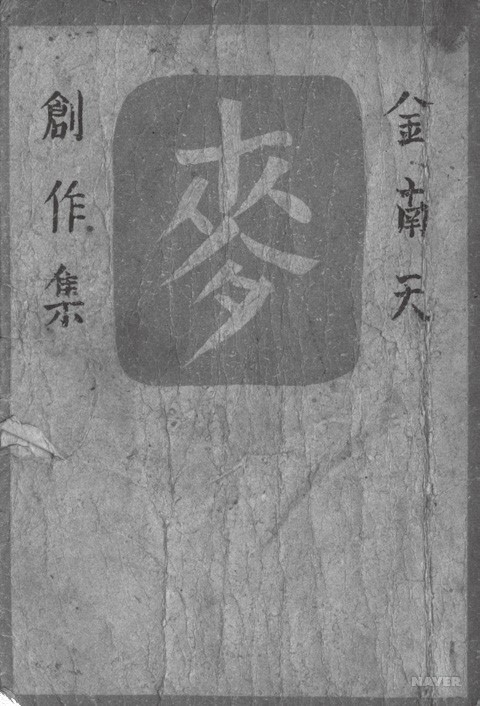 金南天
麥
創作集
NAVER